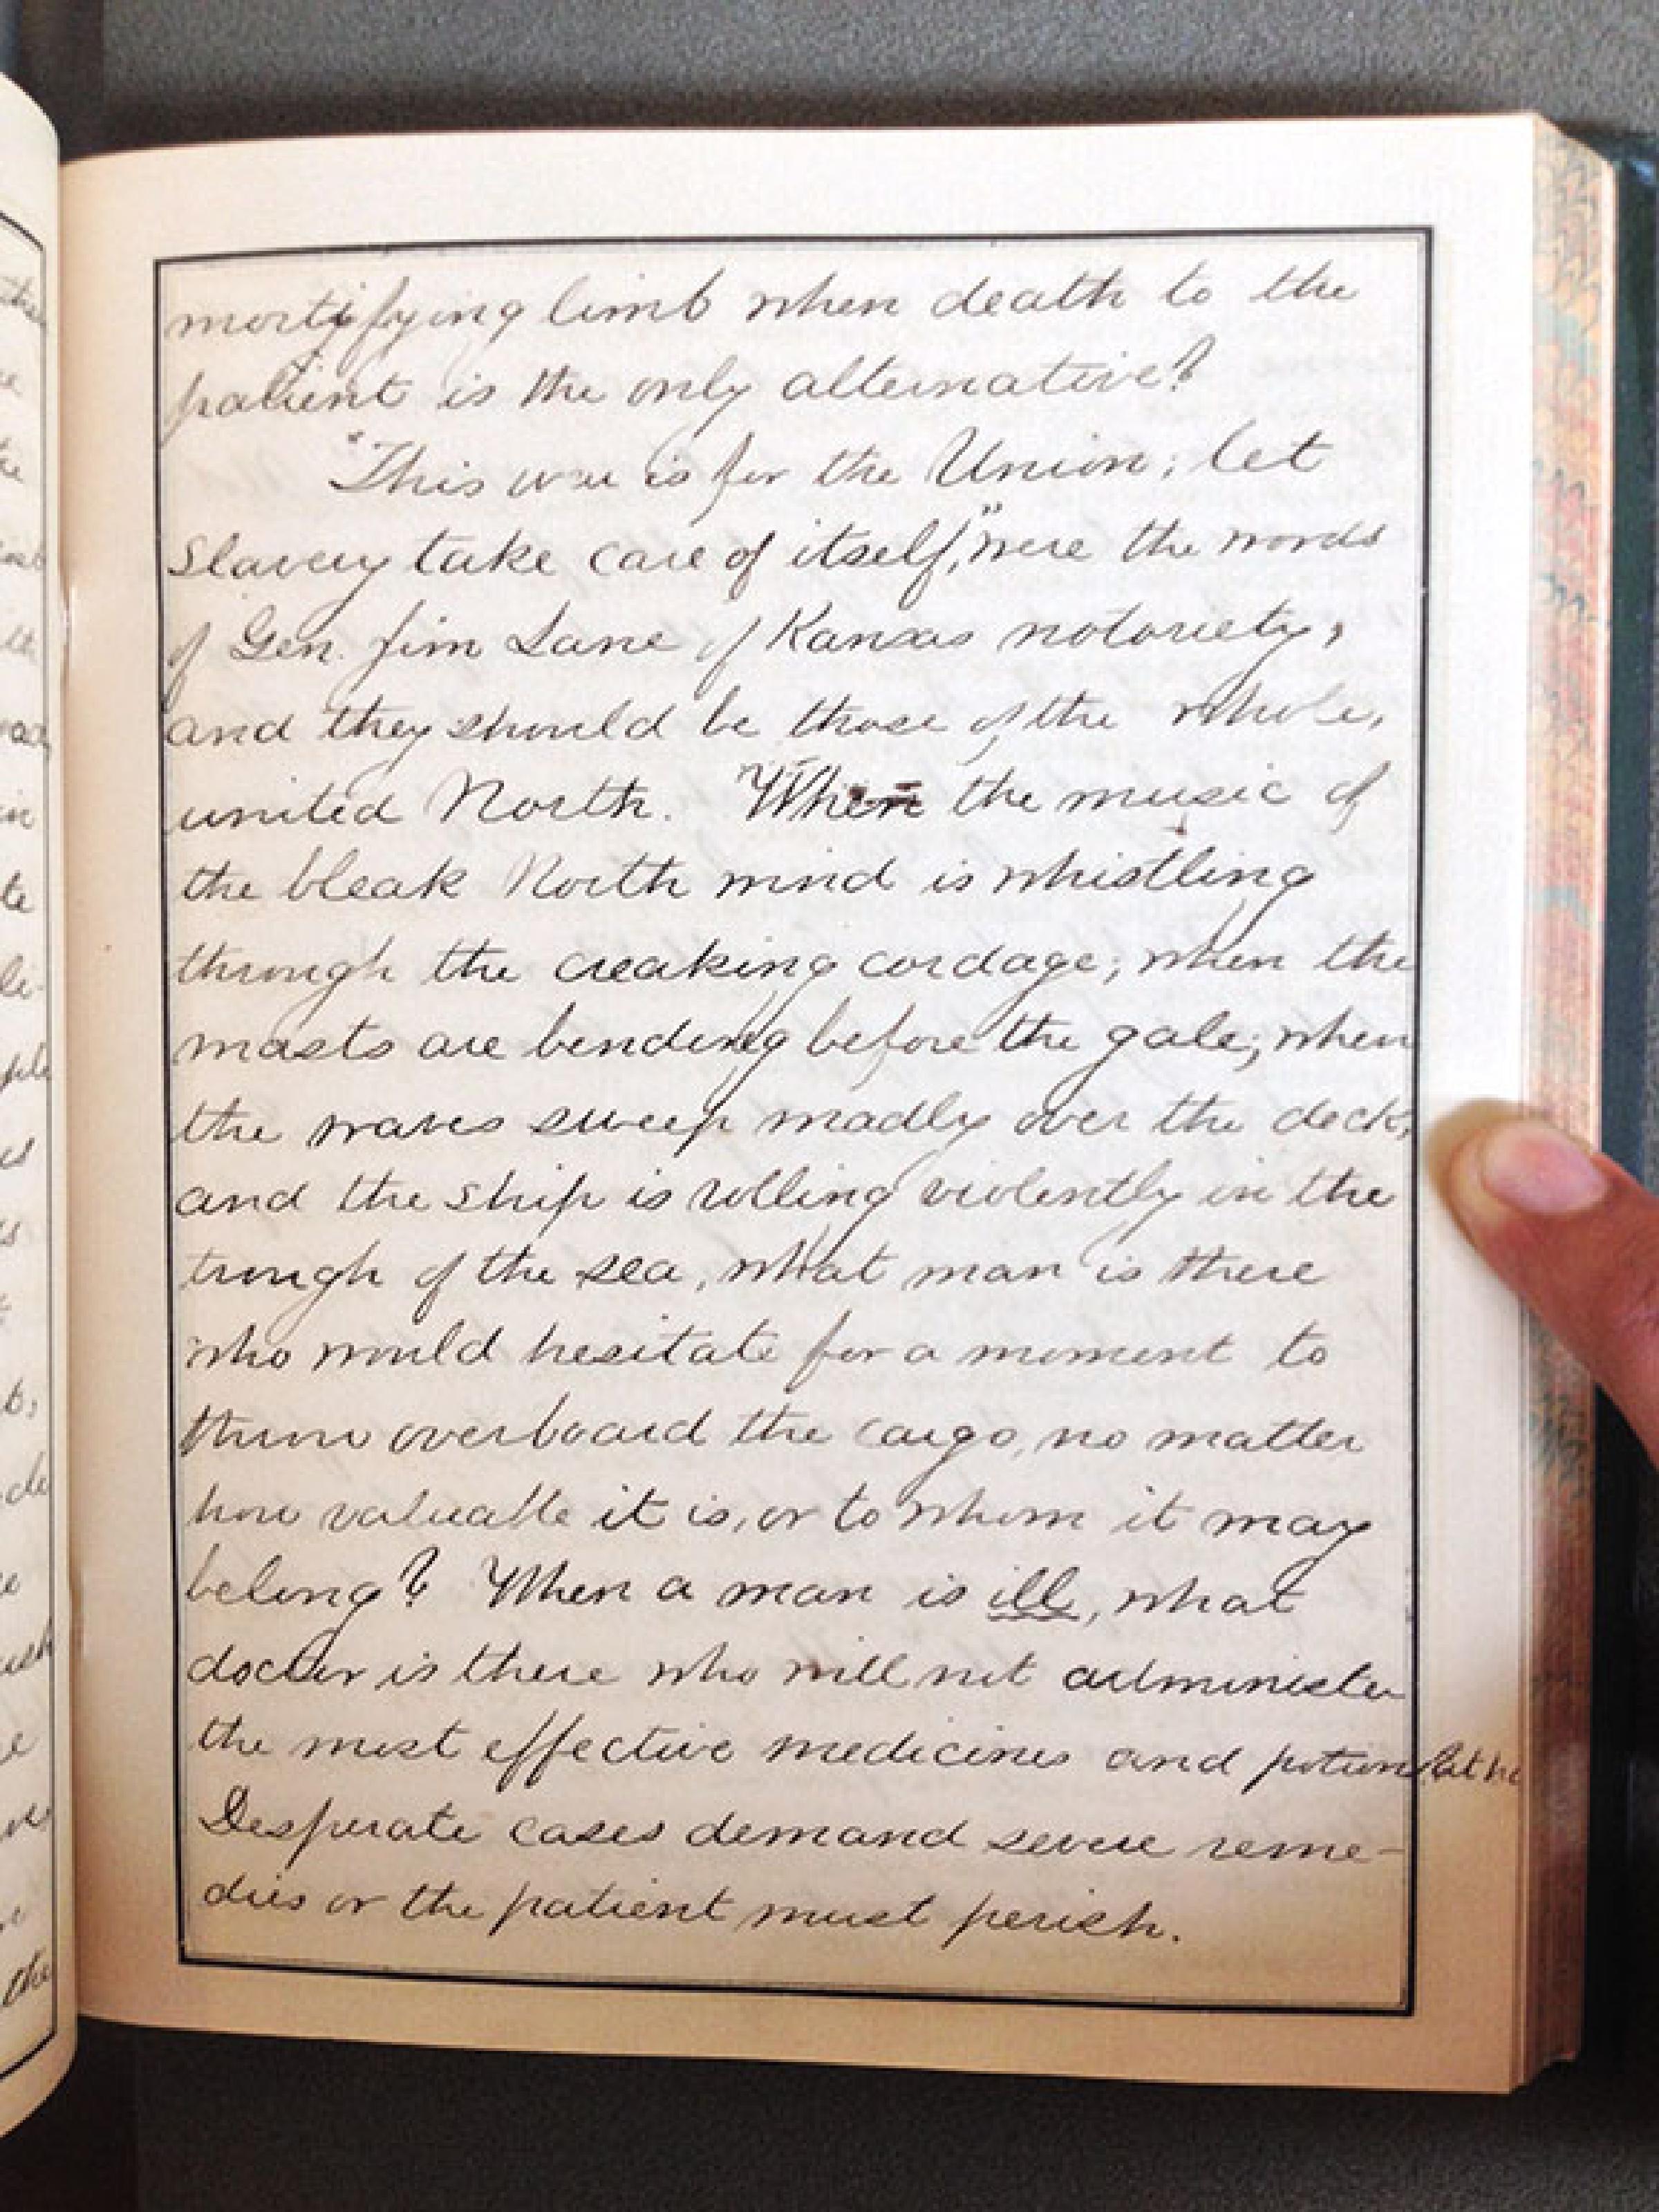 mortifying limb when death to the
patient is the only alternative?
"This war is for the Union; let
Slavery take care of itself," were the words
of Gen. Jim Lane of Kansas notoriety,
and they should be those of the whole,
united North. "When the music of
the bleak North wind is whistling
through the creaking cordage; when the
masts are bending before the gale; when
the waves sweep madly over the deck,
and the ship is rolling violently in the
trough of the sea, what man is there
who would hesitate for a moment to
throw overboard the cargo, no matter
how valuable it is, or to whom it may
belong? When a man is ill, what
doctor is there who will not administer
the most effective medicines and potions
Desperate cases demand severe reme-
dies or the patient must perish.